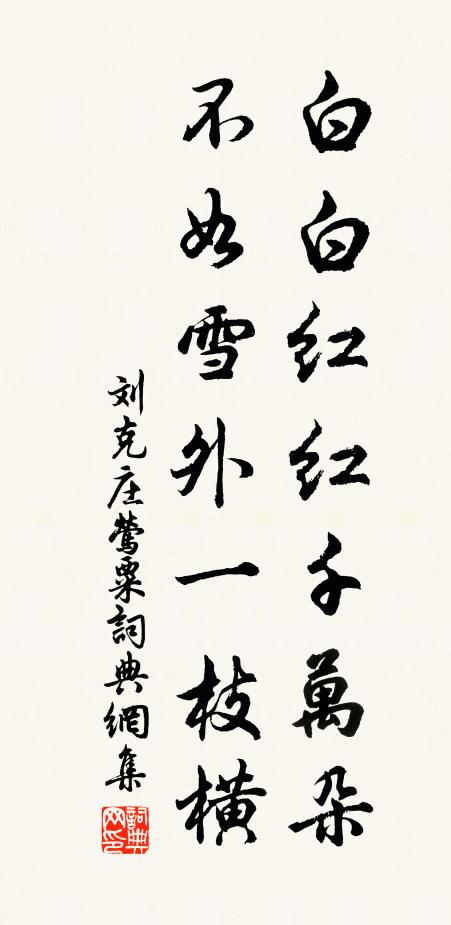 白白红红千萬朵
不如雪外一枝横
刘克庄莺粟詞典網集
詞典網印